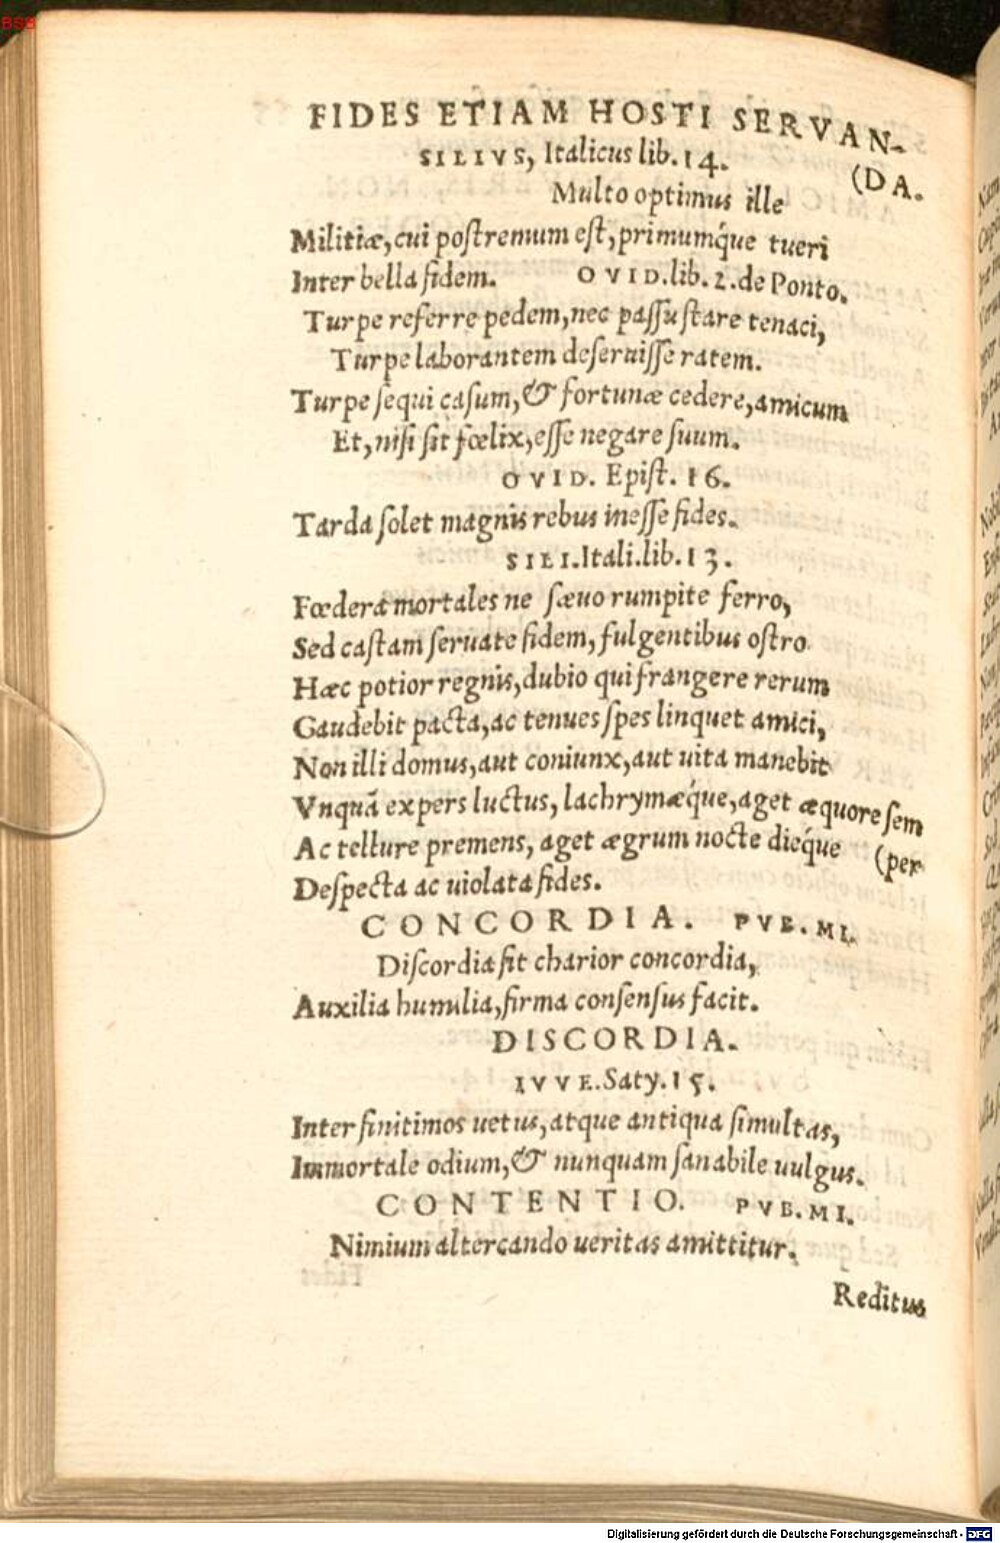 BSB
FIDES ETIAM HOSTI SERVAN-
SILIVS, Italicus lib. 14. (DA.
Multo optimus ille
Militiæ, cui postremum est, primumq́ue tueri
Inter bella fidem. OVID. lib. 2. de Ponto.
Turpe referre pedem, nec passu stare tenaci,
Turpe laborantem deseruisse ratem.
Turpe sequi casum, & fortunæ cedere, amicum
Et, nisi sit fœlix, esse negare suum.
OVID. Epist. 16.
Tarda solet magnis rebus inesse fides.
SILI. Itali. lib. 13.
Fœdera mortales ne sæuo rumpite ferro,
Sed castam seruate fidem, fulgentibus ostro
Hæc potior regnis, dubio qui frangere rerum
Gaudebit pacta, ac tenues spes linquet amici,
Non illi domus, aut coniunx, aut uita manebit
Vnquã expers luctus, lachrymæq́ue, aget æquore sem
Ac tellure premens, aget ægrum nocte dieq́ue (per
Despecta ac uiolata fides.
CONCORDIA. PVB. MI.
Discordia fit charior concordia,
Auxilia humilia, firma consensus facit.
DISCORDIA.
IVVE. Saty. 15.
Inter finitimos uetus, atque antiqua simultas,
Immortale odium, & nunquam sanabile uulgus.
CONTENTIO. PVB. MI.
Nimium altercando ueritas amittitur.
Reditus
Digitalisierung gefördert durch die Deutsche Forschungsgemeinschaft - DFG